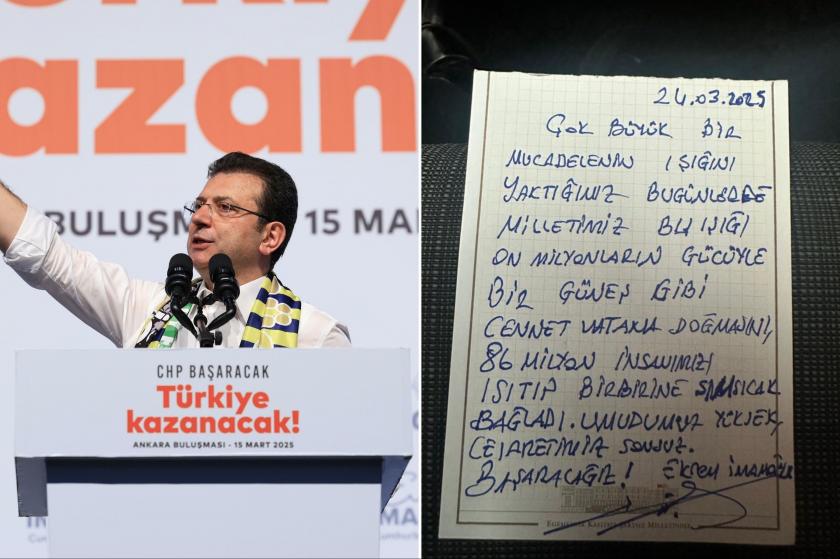 azan
BULUŞM 15 MA
CHP BAŞARACAK
Türkiye
kazanacak!
ANKARA BULUŞMASI - 15 MART 2025
24.03.2025
ÇOK BÜYÜK BİR
MÜCADELENİN IŞIĞINI
YAKTIĞIMIZ BUGÜNLERDE
MİLLETİMİZ BU IŞIĞI
ON MİLYONLARIN GÜCÜYLE
BİR GÜNEŞ GİBİ
CENNET VATANA DOĞMASINI,
86 MİLYON İNSANIMIZI
ISITIP BİRBİRİNE SIMSICAK
BAĞLADI. UMUDUMUZ YÜKSEK,
CESARETİMİZ SONSUZ.
BAŞARACAĞIZ! EKREM İMAMOĞLU
EGEMENLİK KAYITSIZ ŞARTSIZ MİLLETİNDİR